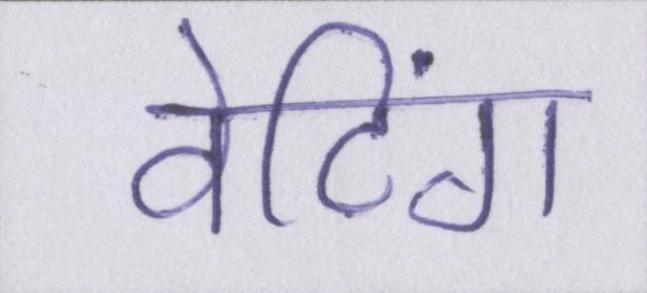 वेटिंग